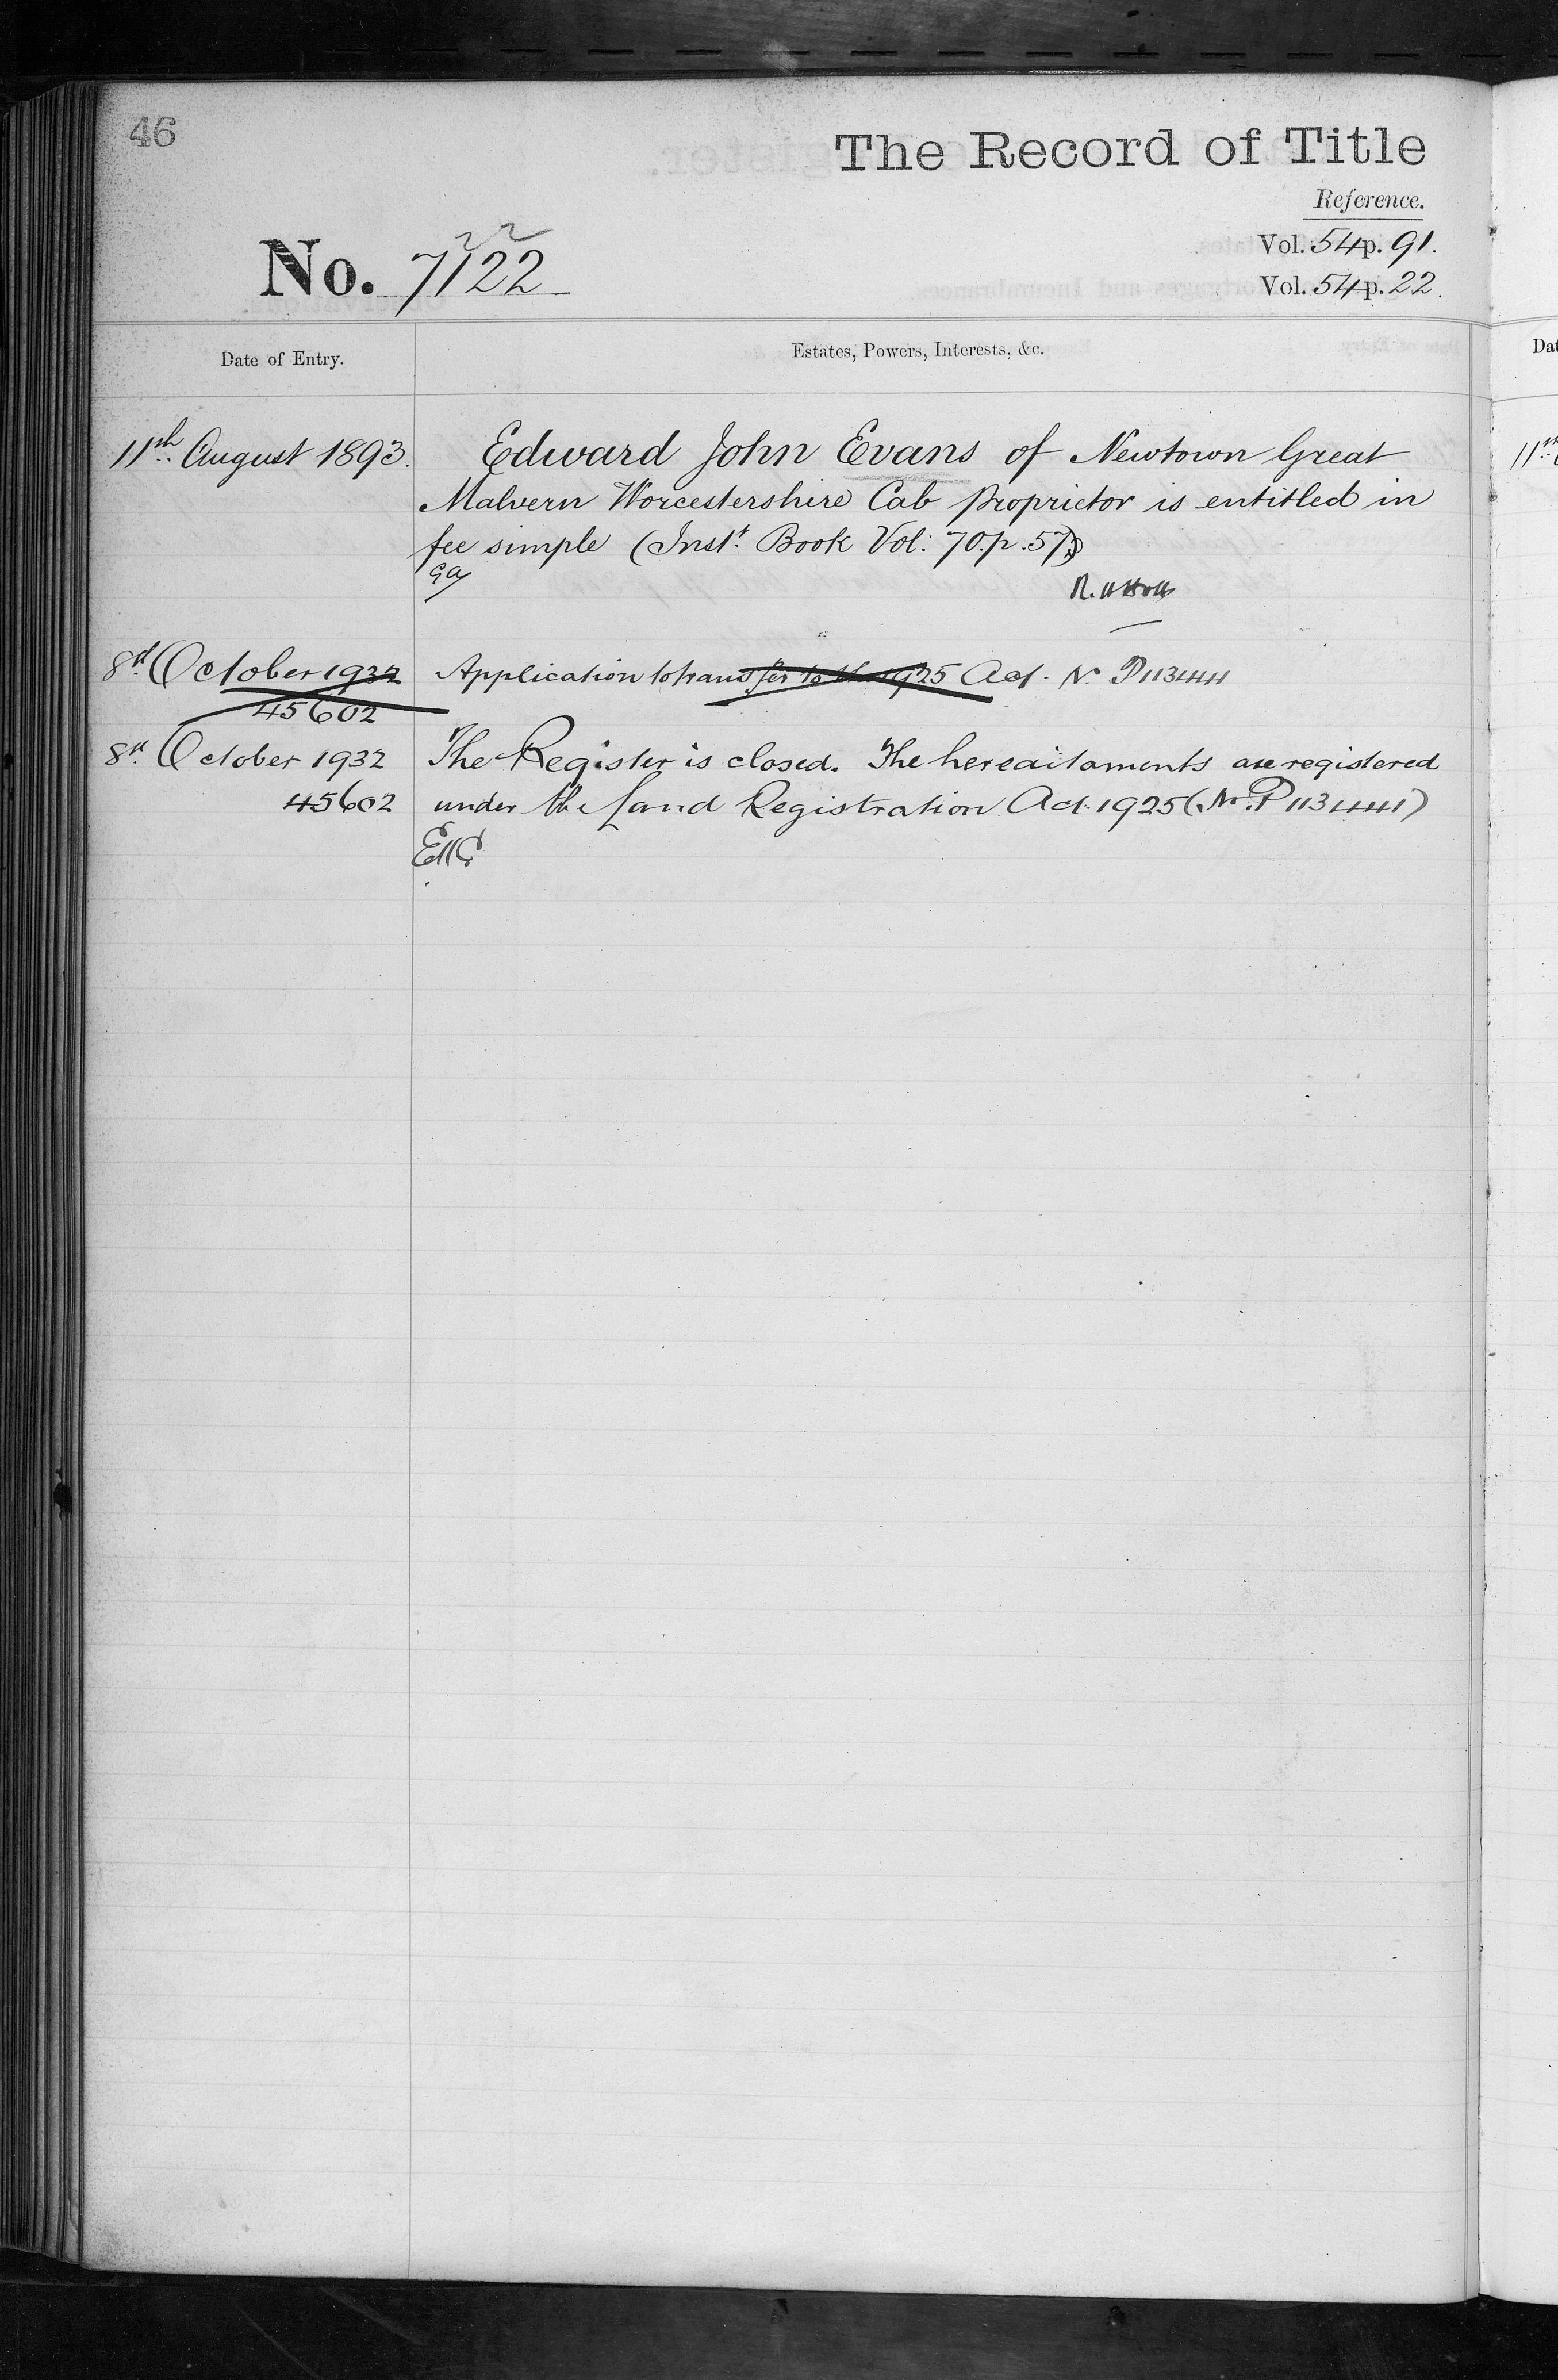 46
The Record of Title
Reference.
Vol. 54 p. 91.
Vol. 54 p. 22.
No. 7122
Date of Entry.
Estates, Powers, Interests, &c.
11th August 1893.
Edward John Evans of Newtown Great
Malvern Worcestershire Cab proprietor is entitled in
fee simple (Inst. Book Vol: 70. p. 57)
8th October 1932
45602
Application to transfer to the 1925 Act. No.
8th October 1932
45602
The Register is closed. The hereditaments are registered
under the Land Registration Act. 1925 (No.
Dat
11th